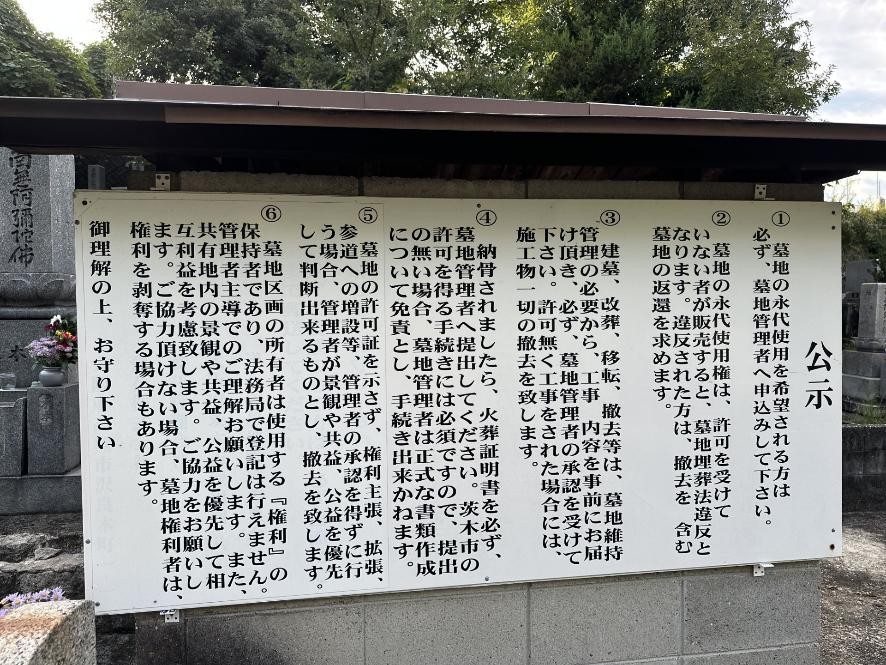 公示
①
墓地の永代使用を希望される方は
必ず、墓地管理者へ申込みして下さい。
②
墓地の永代使用権は、許可を受けて
いない者が販売すると、墓地埋葬法違反と
なります。違反された方は、撤去を 含む
墓地の返還を求めます。
③
建墓、改葬、移転、撤去等は、墓地維持
管理の必要から、工事 内容を事前にお届
け頂き、必ず、墓地管理者の承認を受けて
下さい。許可無く工事をされた場合には、
施工物一切の撤去を致します。
④
納骨されましたら、火葬証明書を必ず、
墓地管理者へ提出してください。茨木市の
許可を得る手続きには必須ですので、提出
の無い場合、墓地管理者は正式な書類作成
について免責とし、手続き出来かねます。
⑤
墓地の許可証を示さず、権利主張、拡張、
参道への増設等、管理者の承認を得ずに行
う場合、管理者が景観や共益、公益を優先
して判断出来るものとし、撤去を致します。
⑥
墓地区画の所有者は使用する『権利』の
保持者であり、法務局で登記は行えません。
管理者主導でのご理解お願いします。また、
共有地内の景観や共益、公益を優先して相
互利益を考慮致します。ご協力をお願いし
ます。ご協力頂けない場合、墓地権利者は、
権利を剥奪する場合もあります。
御理解の上、お守り下さい
南無阿彌陀佛